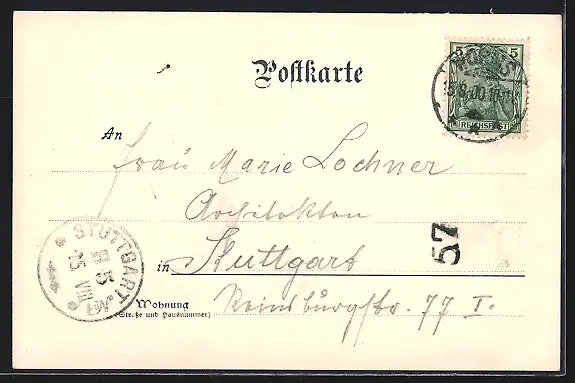 Postkarte
5 5
REICHSPOST
WORMS
5.8.00.10-11
An
Frau Marie Lochner
Architekten
in Stuttgart
57
Wohnung
(Straße und Hausnummer)
Reinsburgstr. 77 I.
STUTTGART No 1
5
15 VIII